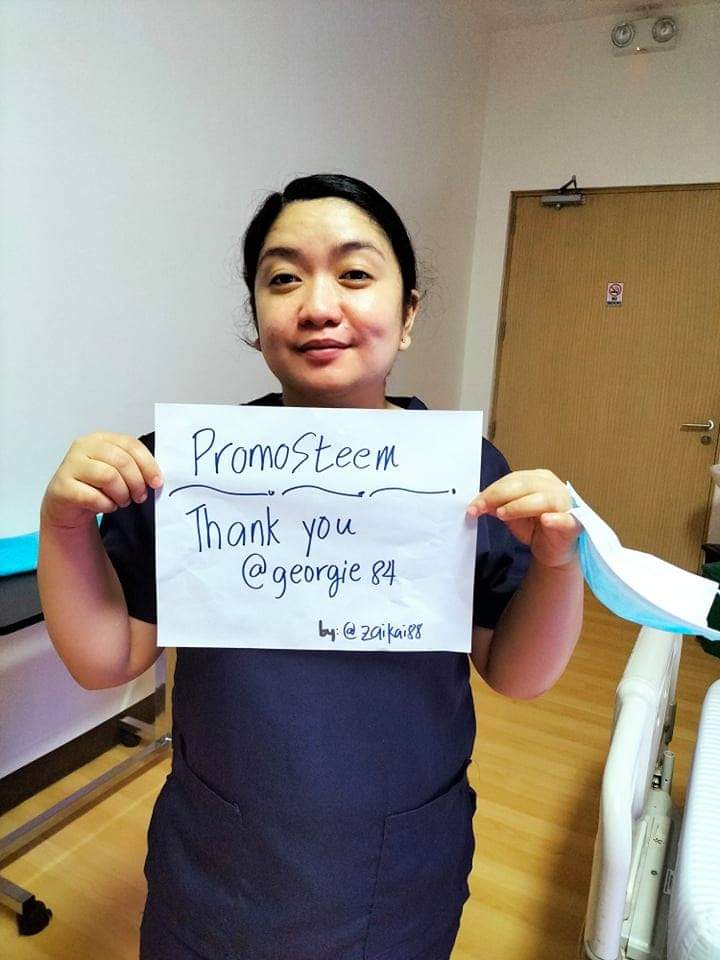 PromoSteem
Thank you
@georgie 84
by: @zaikai88